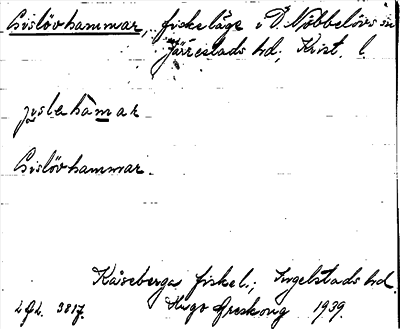 Gislövhammar, fiskeläge i Ö. Nöbbelövs sn
Järrestads hd, Krist. l
jislehamar
Gislövhammar.
Kåseberga fiskel.; Ingelstads hd.
3817. Hugo Areskoug 1939.